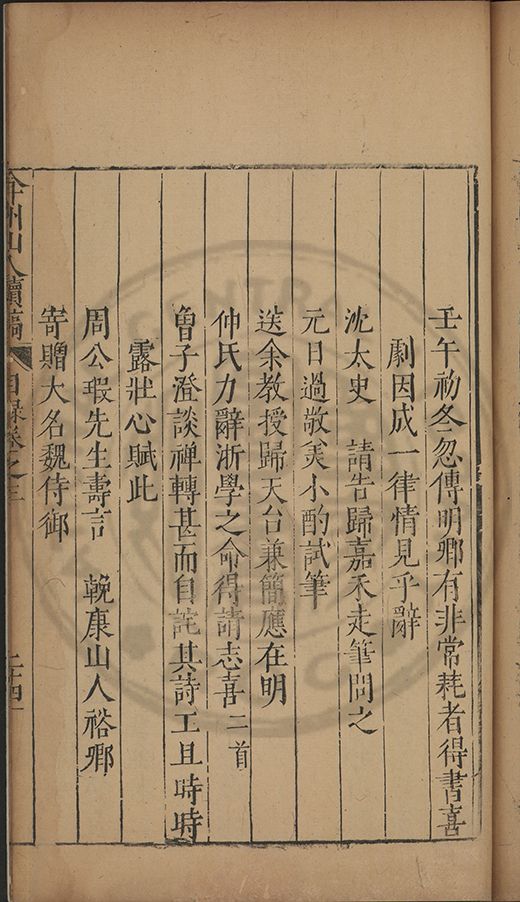 壬午初冬忽傳明卿有非常耗者得書喜
劇因成一律情見乎辭
沈太史　請告歸嘉禾走筆問之
元日過敬美小酌試筆
送余教授歸天台兼簡應在明
仲氏力辭浙學之命得請志喜二首
曾子澄談禪轉甚而自詫其詩工且時時
露壯心賦此
周公瑕先生壽言　輓康山人裕卿
寄贈大名魏侍御
弇州山人續稿　目錄卷之三　二十四